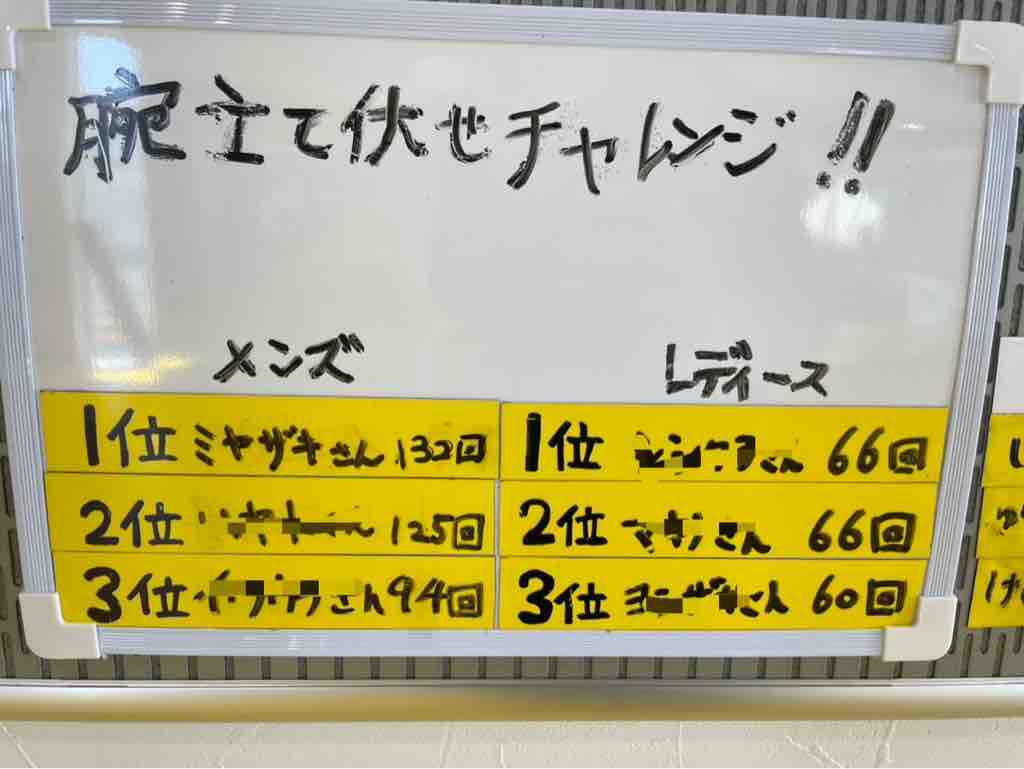 腕立て伏せチャレンジ!!
メンズ
1位 ミヤザキさん 132回
2位 125回
3位 さん 94回
レディース
1位 さん 66回
2位 さん 66回
3位 さん 60回